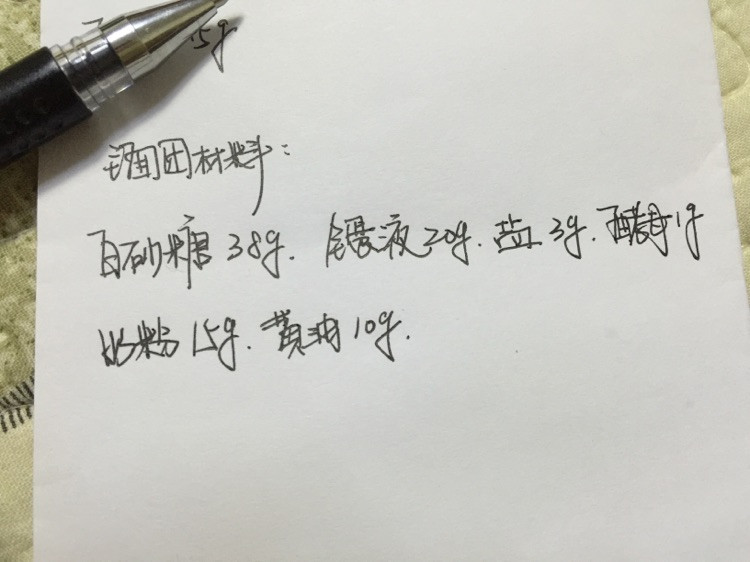 5g
主面团材料:
白砂糖38g. 全蛋液20g. 盐3g. 酵母1g
奶粉15g. 黄油10g.